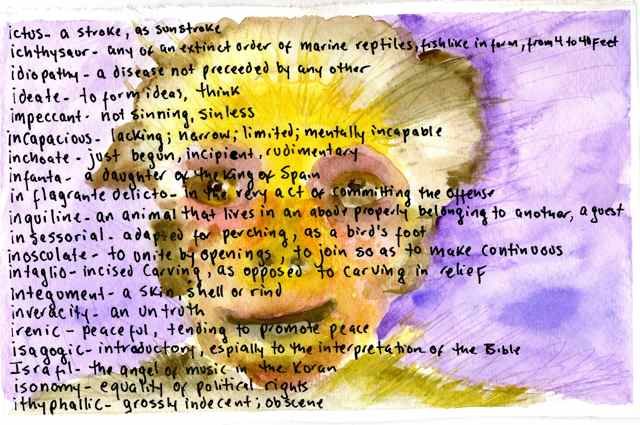 ictus - a stroke, as sunstroke
ichthysaur - any of an extinct order of marine reptiles, fishlike in form, from 4 to 40 feet
idiopathy - a disease not preceeded by any other
ideate - to form ideas, think
impeccant - not sinning, sinless
incapacious - lacking; narrow; limited; mentally incapable
inchoate - just begun, incipient, rudimentary
infanta - a daughter of the King of Spain
in flagrante delicto - in the very act of committing the offense
inquiline - an animal that lives in an abode properly belonging to another, a guest
insessorial - adapted for perching, as a bird's foot
inosculate - to unite by openings, to join so as to make continuous
intaglio - incised carving, as opposed to carving in relief
integument - a skin, shell or rind
inveracity - an untruth
irenic - peaceful, tending to promote peace
isagogic - introductory, espially to the interpretation of the Bible
Israfil - the angel of music in the Koran
isonomy - equality of political rights
ithyphallic - grossly indecent; obscene